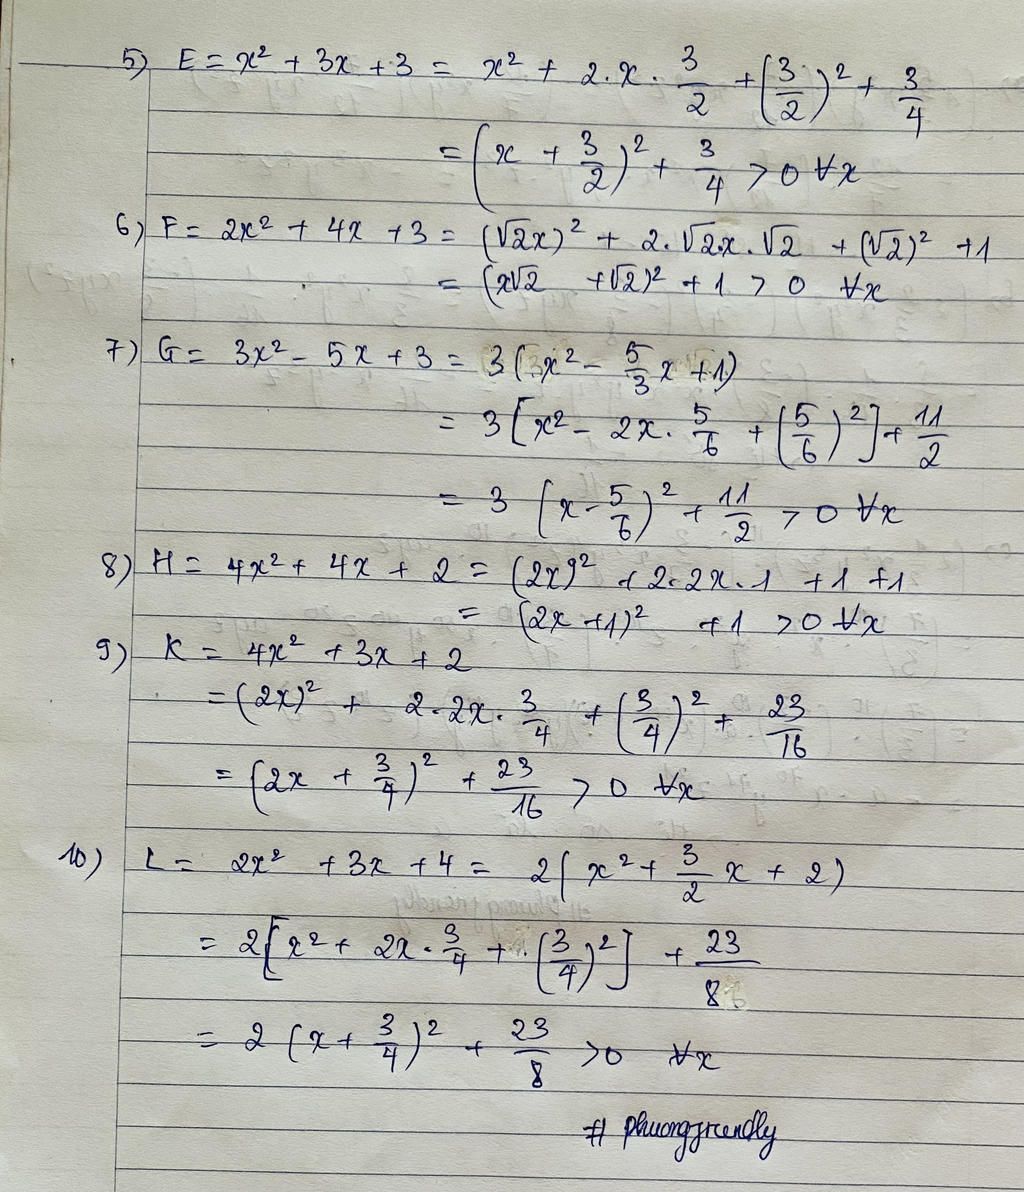 5) E = x² + 3x + 3 = x² + 2.x.3/2 + (3/2)² + 3/4
= (x + 3/2)² + 3/4 > 0 ∀x
6) F = 2x² + 4x + 3 = (√2x)² + 2.√2x.√2 + (√2)² + 1
= (x√2 + √2)² + 1 > 0 ∀x
7) G = 3x² - 5x + 3 = 3(x² - 5/3 x + 1)
= 3[x² - 2x.5/6 + (5/6)²] + 11/2
= 3 (x - 5/6)² + 11/2 > 0 ∀x
8) H = 4x² + 4x + 2 = (2x)² + 2.2x.1 + 1 + 1
= (2x + 1)² + 1 > 0 ∀x
9) K = 4x² + 3x + 2
= (2x)² + 2.2x.3/4 + (3/4)² + 23/16
= (2x + 3/4)² + 23/16 > 0 ∀x
10) L = 2x² + 3x + 4 = 2(x² + 3/2 x + 2)
= 2[x² + 2x.3/4 + (3/4)²] + 23/8
= 2 (x + 3/4)² + 23/8 > 0 ∀x
# phuongfriendly